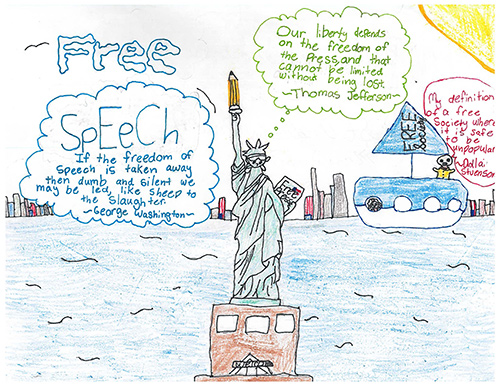 Free
SpEeCh
If the freedom of
Speech is taken away
then dumb and silent we
may be led, like sheep to
the Slaughter.
~George Washington~
Our liberty depends
on the freedom of
the Press, and that
cannot be limited
without being lost.
~Thomas Jefferson~
FREE
Society
My definition
of a free
Society where
it is safe
to be
unpopular